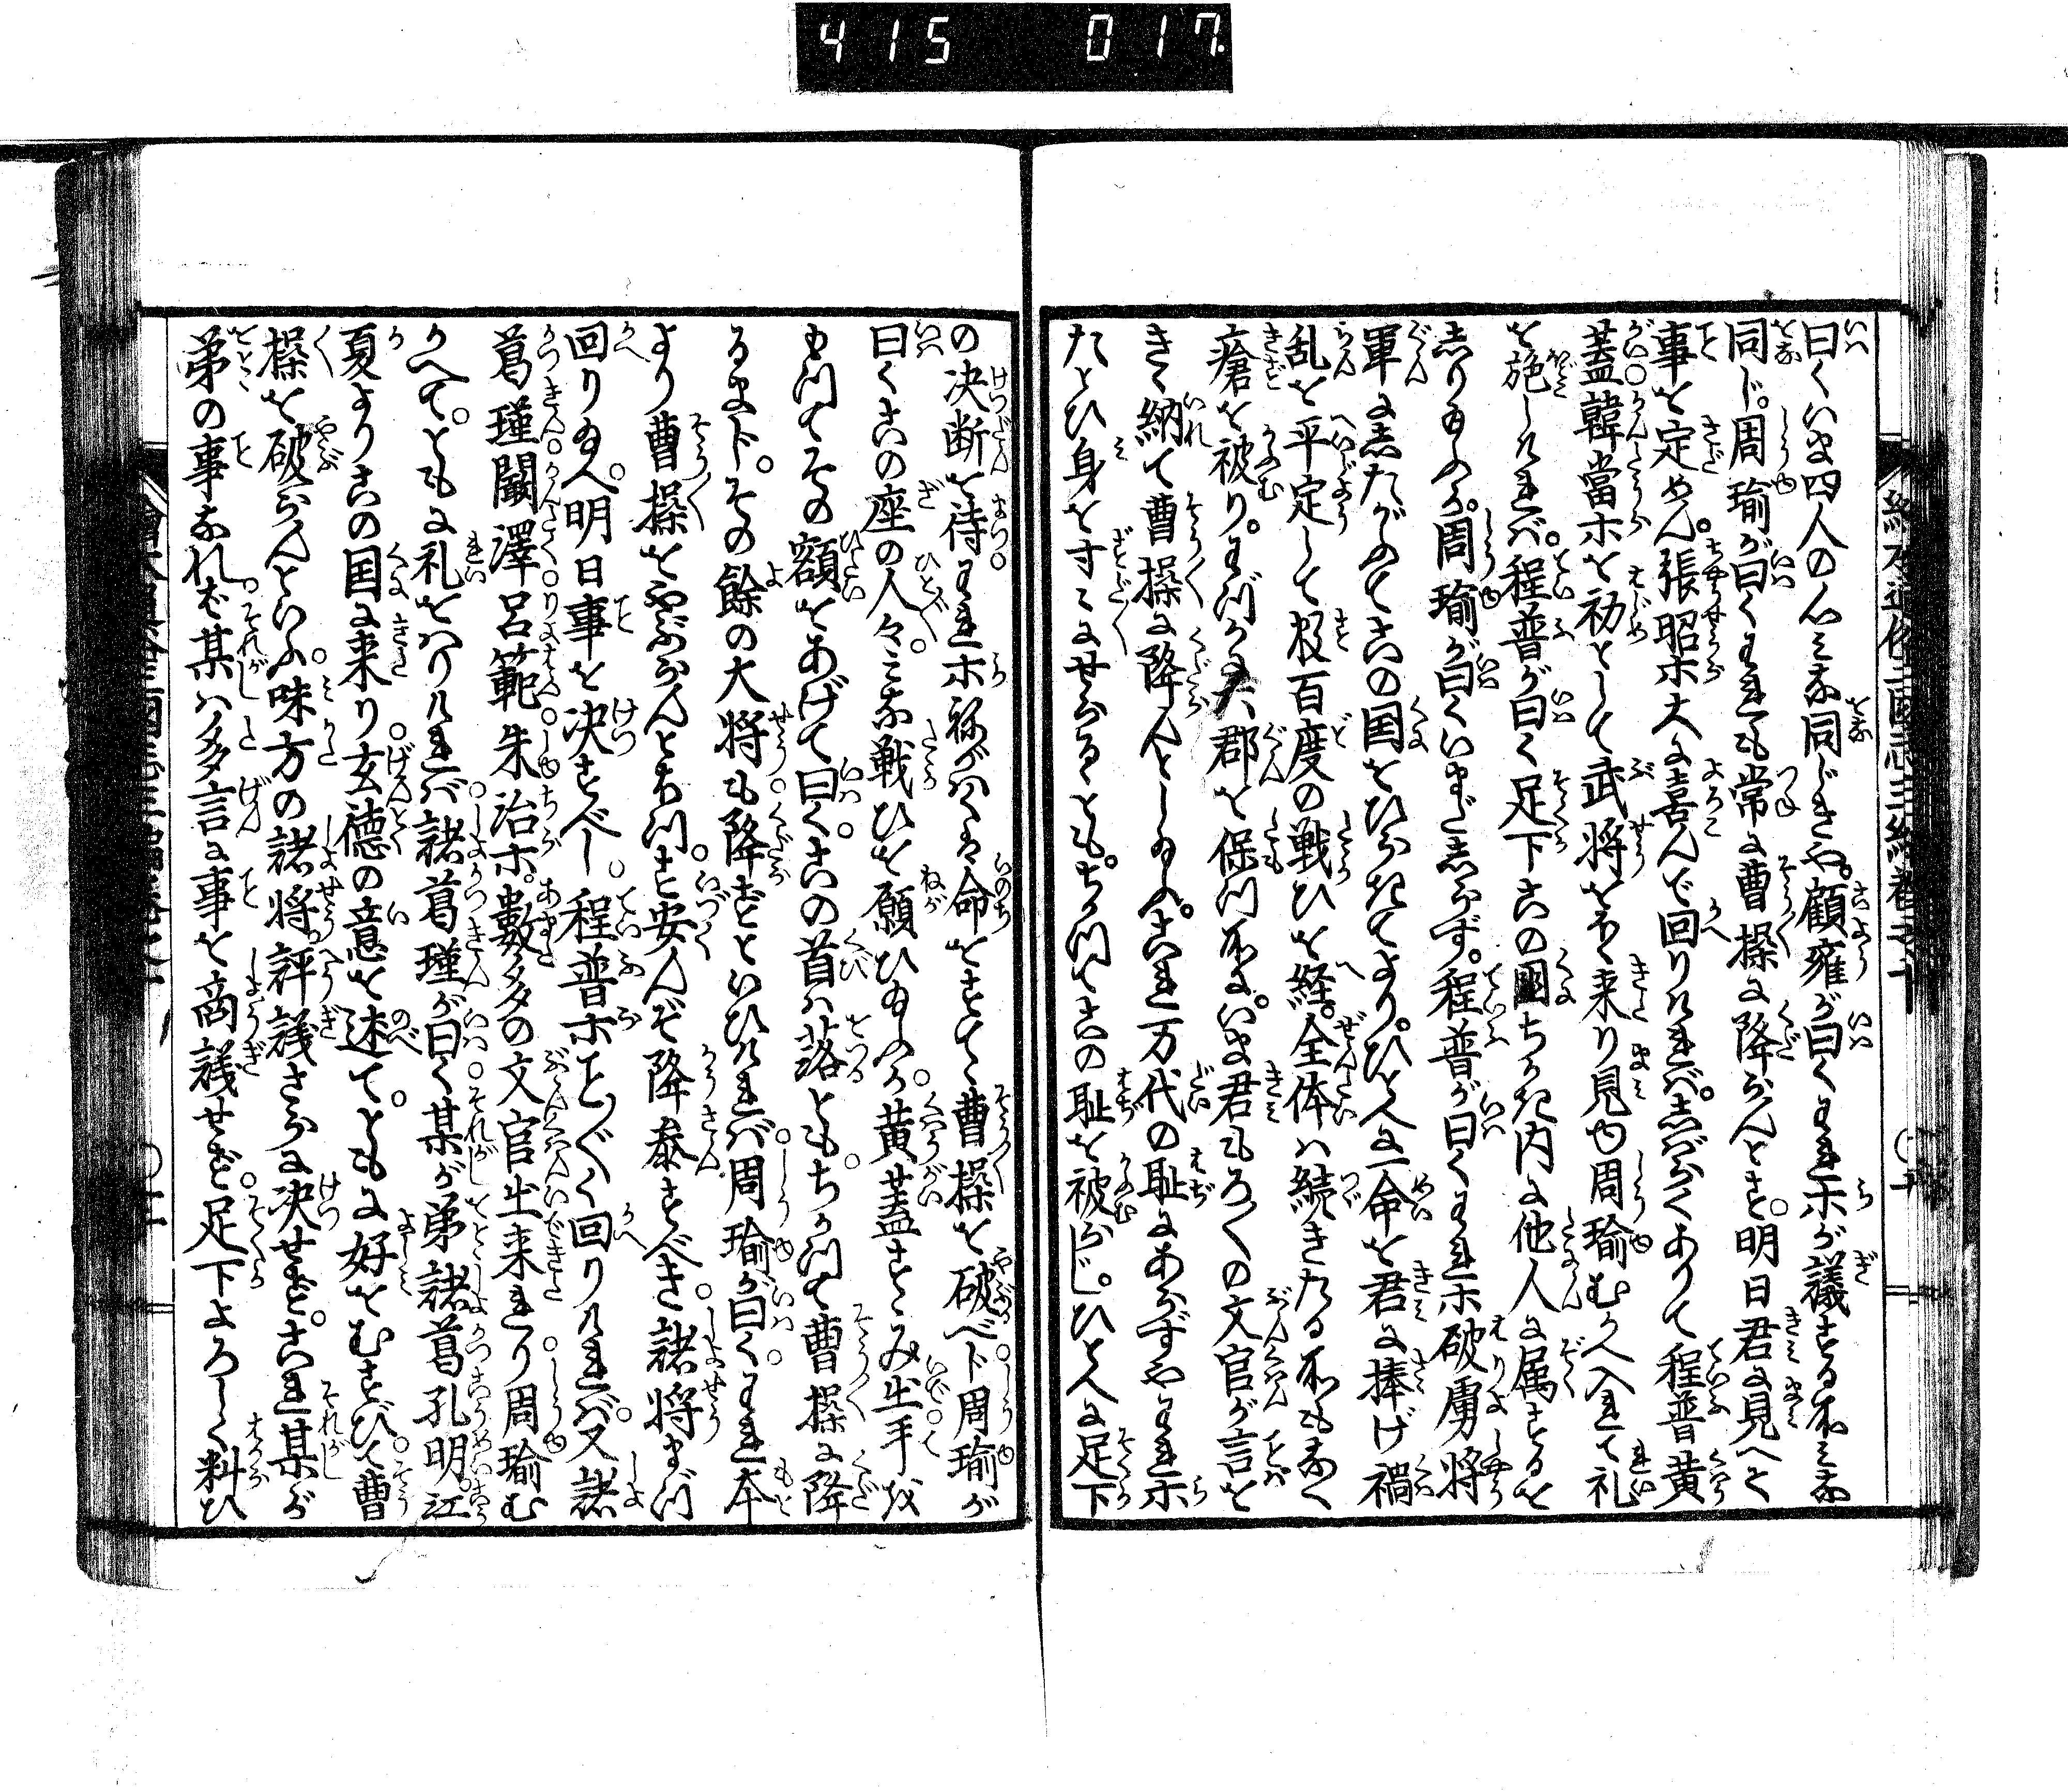 415 017
曰くいま四人の心みな同じきや。顧雍が曰くわれ等が議する所みな
同じ。周瑜が曰くわれも常に曹操に降らんとす。明日君に見へて
事を定めん。張昭等大に喜んで回りければ。しばらくありて程普黄
蓋韓當等を初として武将を多く来り見ゆ周瑜むかへ入れて礼
を施しければ。程普が曰く足下この国ちかき内に他人に属するを
しり給ふか。周瑜が曰くいまだしらず。程普が曰くわれ等破虜将
軍にしたがふてこの国をひらきてより。ひとへに一命を君に捧げ禍
乱を平定して数百度の戦ひを経。全体は続きたる所もなく
瘡を被り。わづかに六郡を保つ所に。いま君もろ〳〵の文官が言を
きゝ納て曹操に降んとし給ふ。これ万代の恥にあらずやわれ等
たとひ身を寸々にせらるゝとも。ちかつてこの恥を被らじ。ひとへに足下
の決断を待。われ等ねがはくは命をすてゝ曹操を破べし周瑜が
曰くこの座の人々みな戦ひを願ひ給ふか。黄蓋すゝみ出手を
もつてその額をあげて曰く。この首は落るとも。ちかつて曹操に降
るまじ。その餘の大将も降らじといひければ周瑜が曰く。われ本
より曹操をやぶらんとおもつて安んぞ降参すべき。諸将まづ
回り給へ。明日事を決すべし。程普等こと〴〵く回りければ。又諸
葛瑾闞澤呂範朱治等。數多の文官出来れり周瑜む
かへて。ともに礼をはりければ諸葛瑾が曰く某が弟諸葛孔明。江
夏よりこの国に来り。玄徳の意を述て。ともに好をむすびて。曹
操を破らんといふ。味方の諸将。評議さらに決せず。これ某が
弟の事なれば。某は多言に事を商議せず。足下よろしく料ひ